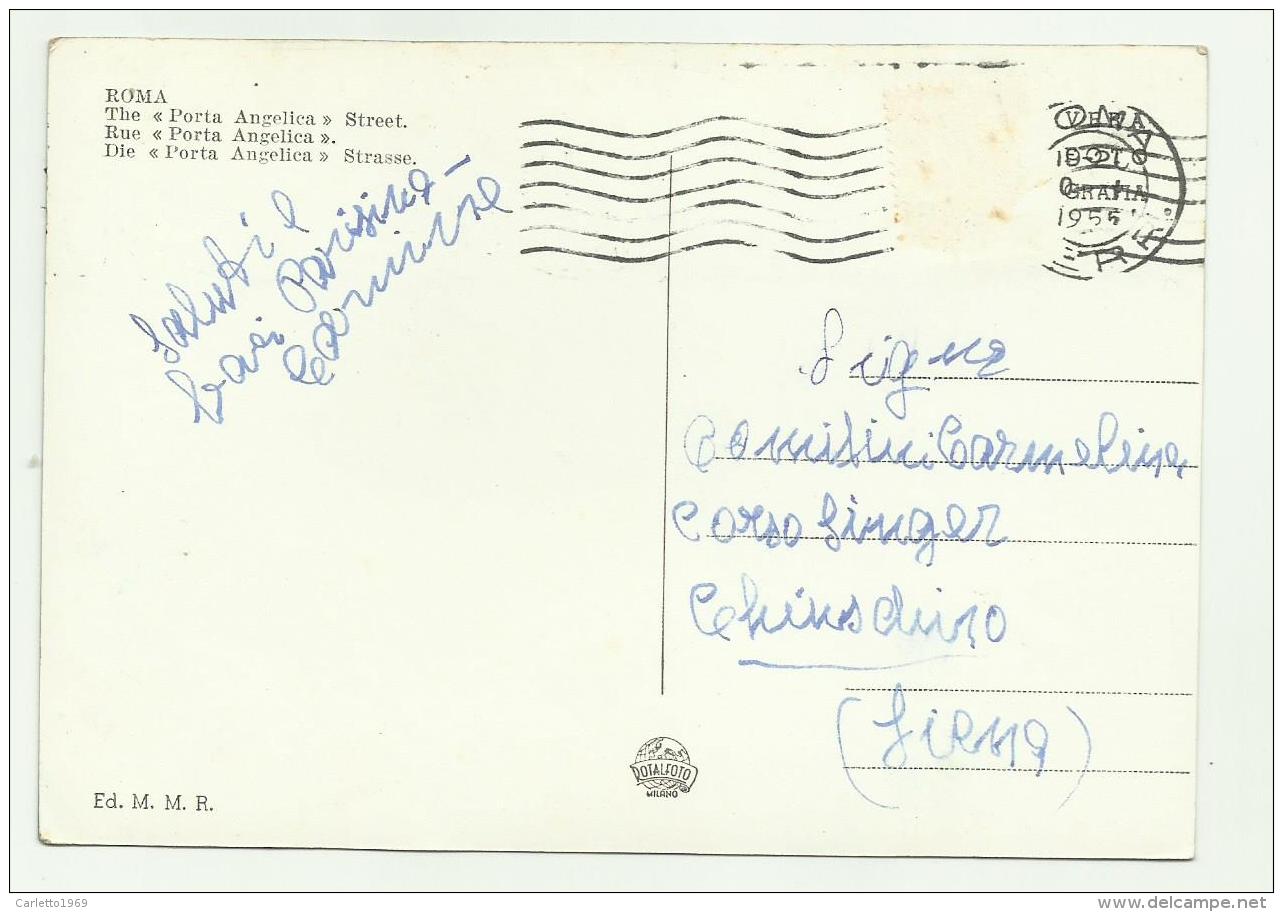 ROMA
The « Porta Angelica » Street.
Rue « Porta Angelica ».
Die « Porta Angelica » Strasse.
Saluti e
baci Parisina
Carmine
VERA
FOTO
GRAFIA
1955
Sigra
Comitini Carmelina
Corso Singer
Chiusdino
(Siena)
ROTALFOTO
MILANO
Ed. M. M. R.
Carletto1969
delcampe.net